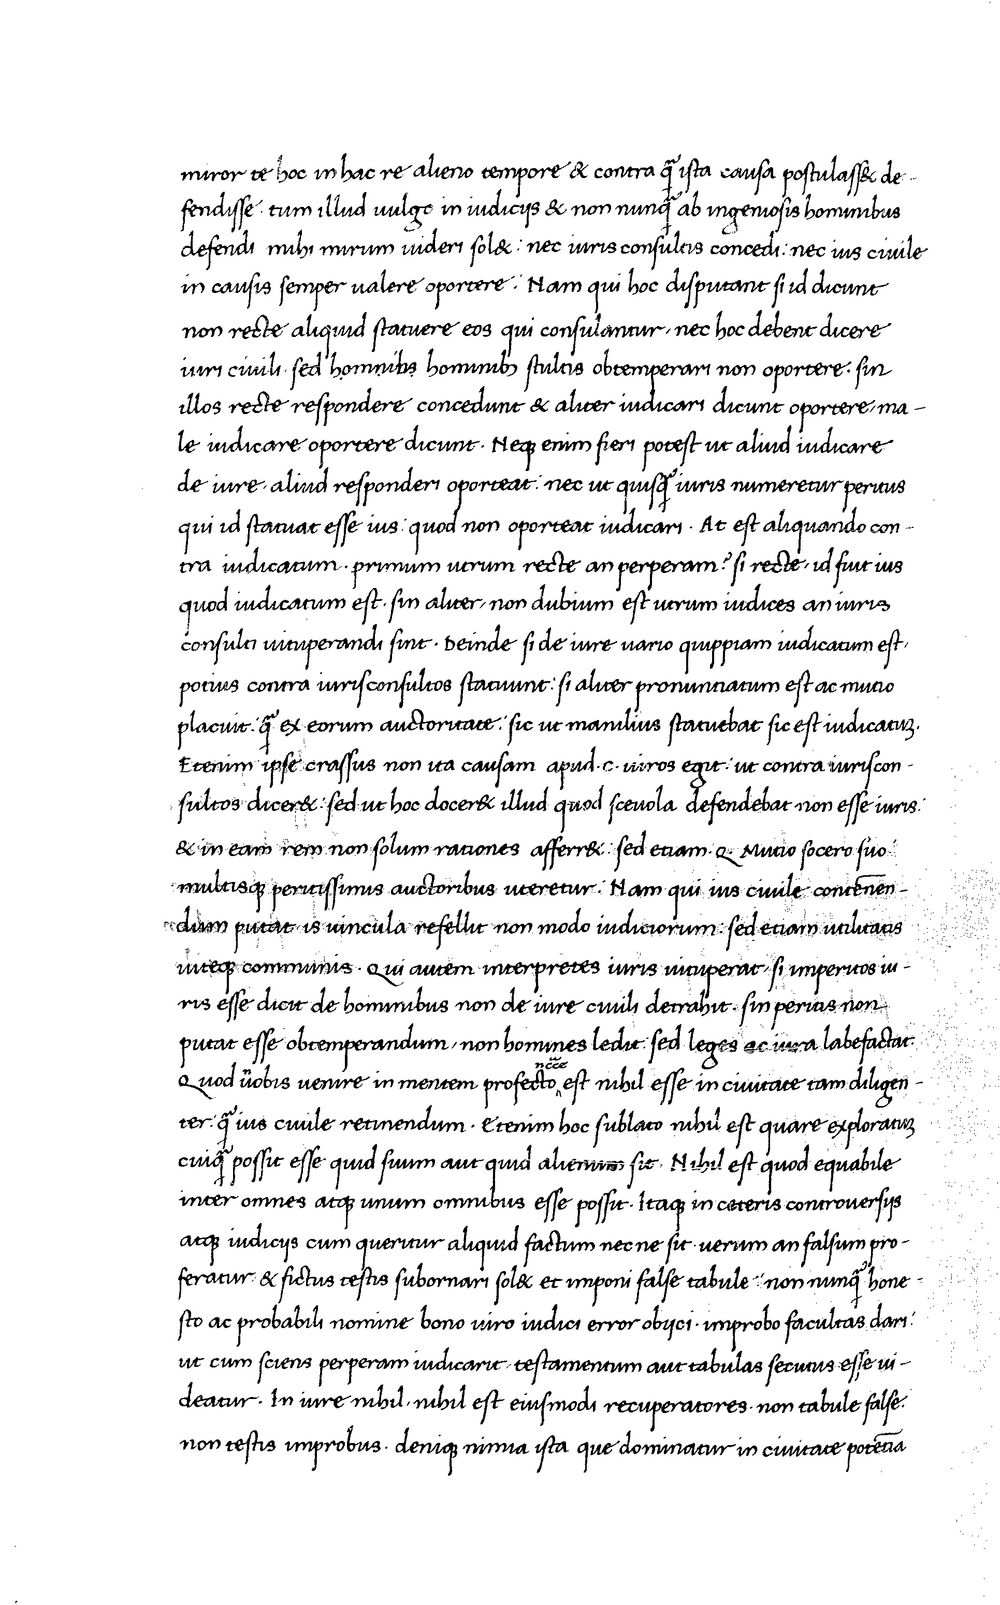 miror te hoc in hac re alieno tempore & contra q̃ ista causa postulass& de-
fendisse · tum illud uulgo in iudicijs & non nunq̃ ab ingeniosis hominibus
defendi mihi mirum uideri sol& : nec iuris consultis concedi : nec ius ciuile
in causis semper ualere oportere : Nam qui hoc disputant si id dicunt
non recte aliquid statuere eos qui consulantur, nec hoc debent dicere
iuri ciuili · sed homnibꝫ hominibꝫ stultis obtemperari non oportere : sin
illos recte respondere concedunt & aliter iudicari dicunt oportere, ma-
le iudicare oportere dicunt · Neqꝫ enim fieri potest ut aliud iudicare
de iure, aliud responderi oporteat : nec ut quisq̃ iuris numeretur peritus
qui id statuat esse ius : quod non oporteat iudicari · At est aliquando con-
tra iudicatum · primum utrum recte an perperam ? si recte, id fuit ius
quod iudicatum est · sin aliter, non dubium est utrum iudices an iuris
consulti uituperandi sint · Deinde si de iure uario quippiam iudicatum est,
potius contra iurisconsultos statuunt : si aliter pronuntiatum est ac mutio
placuit : q̃ ex eorum auctoritate : sic ut manilius statuebat sic est iudicatuꝫ.
Etenim ipse crassus non ita causam apud · c · uiros egit : ut contra iuriscon-
sultos dicer& : sed ut hoc docer& illud quod sceuola defendebat non esse iuris :
& in eam rem non solum rationes afferr& : sed etiam · Q · Mutio socero suo :
multisqꝫ peritissimis auctoribus uteretur : Nam qui ius ciuile contēnen-
dum putat, is uincula refellit non modo iudiciorum : sed etiam utilitatis
uiteqꝫ communis · Qui autem interpretes iuris uituperat, si imperitos iu-
ris esse dicit de hominibus non de iure ciuili detrahit · sin peritis non
putat esse obtemperandum, non homines ledit : sed leges ac iura labefactat.
Quod ũobis uenire in mentem profecto nēcē est nihil esse in ciuitate tam diligen-
ter : q̃ ius ciuile retinendum · Etenim hoc sublato nihil est quare exploratuꝫ
cuiq̃ possit esse quid suum aut quid alienum sit · Nihil est quod equabile
inter omnes atqꝫ unum omnibus esse possit · Itaqꝫ in ceteris controuersijs
atqꝫ iudicijs cum queritur aliquid factum nec ne sit · uerum an falsum pro-
feratur · & fictus testis subornari sol& et imponi false tabule : non nunq̃ hone-
sto ac probabili nomine bono uiro iudici error obijci · improbo facultas dari :
ut cum sciens perperam iudicarit, testamentum aut tabulas secutus esse ui-
deatur · In iure nihil, nihil est eiusmodi recuperatores · non tabule false :
non testis improbus · deniqꝫ nimia ista que dominatur in ciuitate potētia